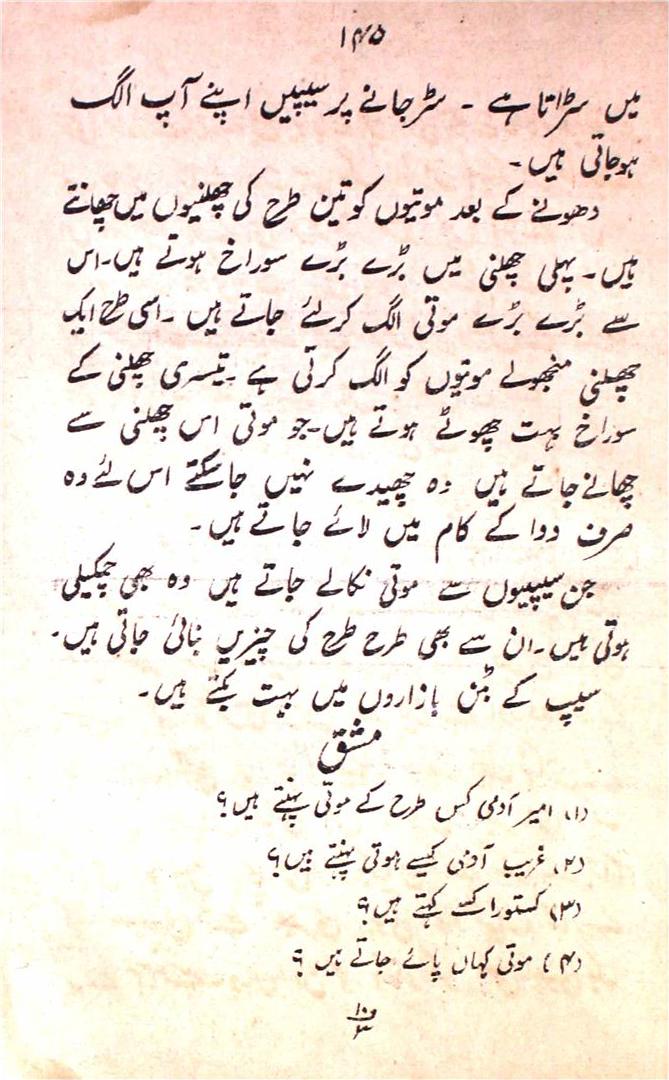 ۱۴۵
میں سڑاتا ہے ۔ سڑ جانے پر سیپیں اپنے آپ الگ
ہوجاتی ہیں۔
دھونے کے بعد موتیوں کو تین طرح کی چھلنیوں میں چھانتے
ہیں۔ پہلی چھلنی میں بڑے بڑے سوراخ ہوتے ہیں۔اس
سے بڑے بڑے موتی الگ کرلئے جاتے ہیں ۔اسی طرح ایک
چھلنی منجھولے موتیوں کو الگ کرتی ہے ۔تیسری چھلنی کے
سوراخ بہت چھوٹے ہوتے ہیں۔جو موتی اس چھلنی سے
چھانے جاتے ہیں وہ چھیدے نہیں جاسکتے اس لئے وہ
صرف دوا کے کام میں لائے جاتے ہیں۔
جن سیپیوں سے موتی نکالے جاتے ہیں وہ بھی چمکیلی
ہوتی ہیں۔ان سے بھی طرح طرح کی چیزیں بنائی جاتی ہیں۔
سیپ کے بٹن بازاروں میں بہت بکتے ہیں۔
مشق
(۱) امیر آدمی کس طرح کے موتی پہنتے ہیں؟
(۲) غریب آدمی کیسے موتی پہنتے ہیں؟
(۳) کستورا کسے کہتے ہیں؟
(۴) موتی کہاں پائے جاتے ہیں ؟